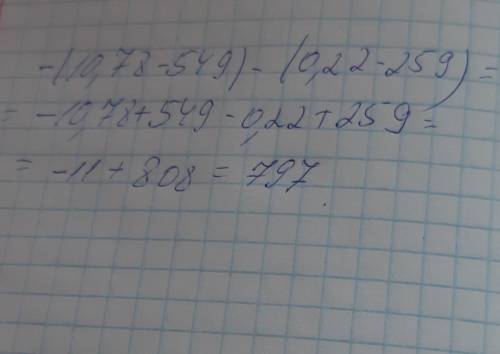 -(10,78-549)-(0,22-259)=
= -10,78+549-0,22+259=
= -11+808=797.